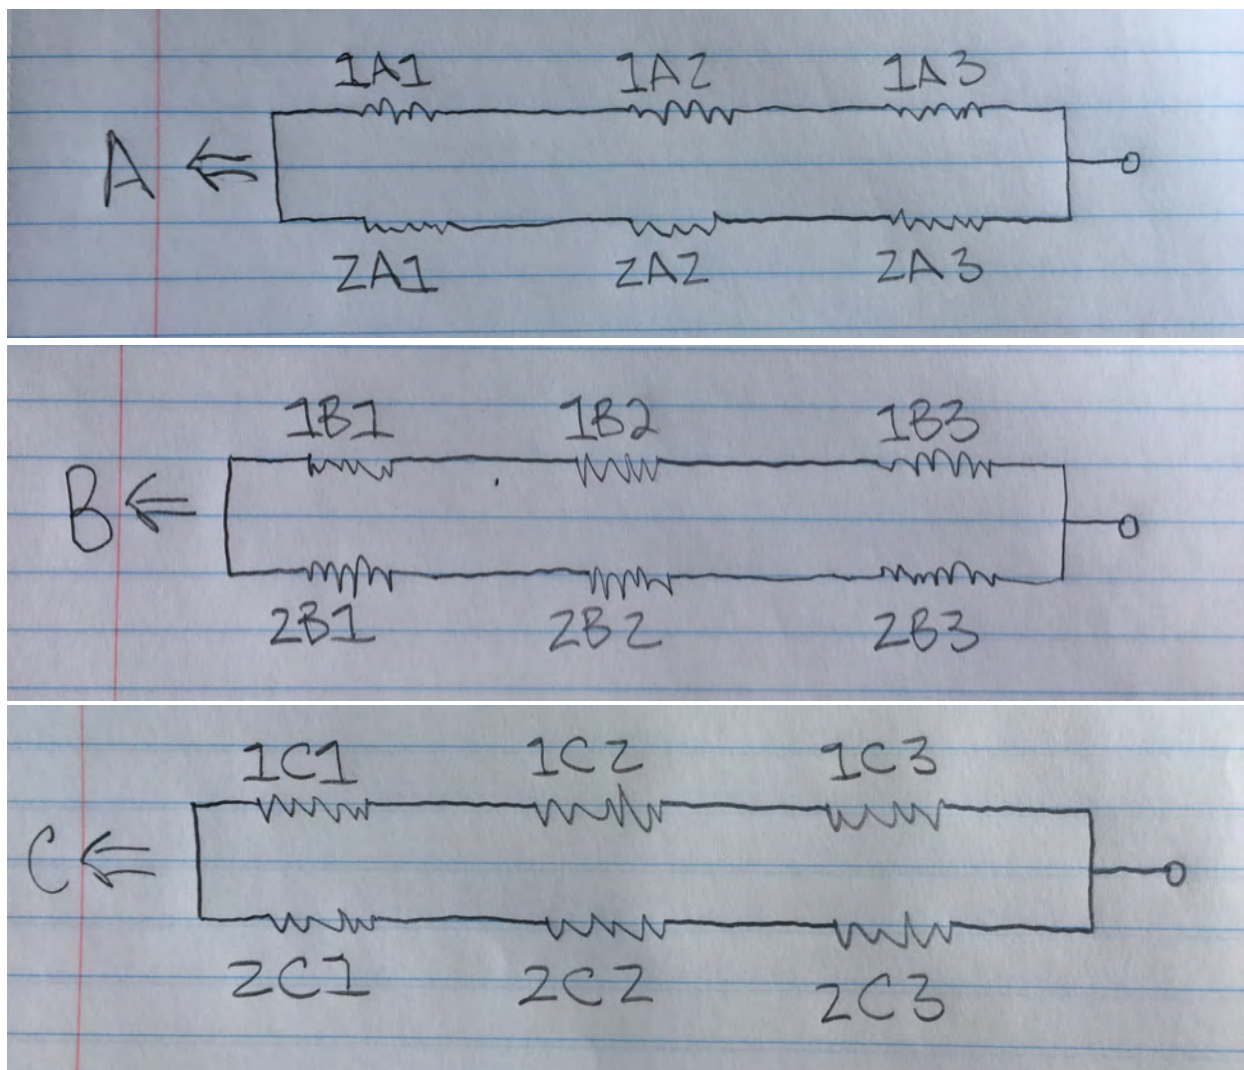 1A1 1A2 1A3
A
2A1 2A2 2A3
1B1 1B2 1B3
B
2B1 2B2 2B3
1C1 1C2 1C3
C
2C1 2C2 2C3